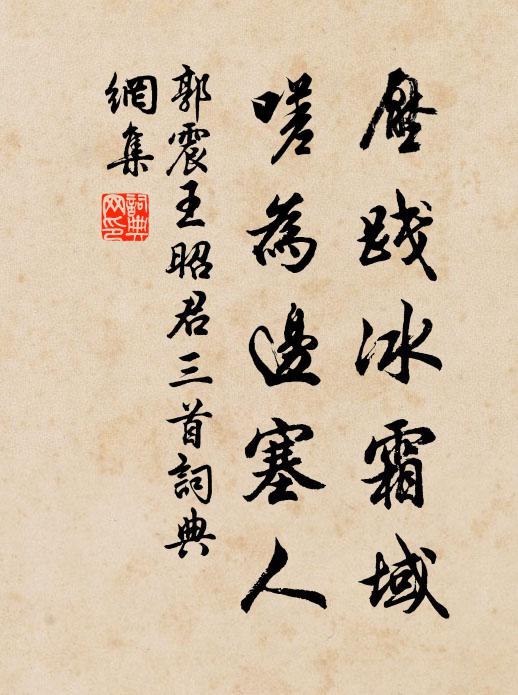 厭踐冰霜域
嗟為邊塞人
郭震王昭君三首詞典
網集
詞典
网印